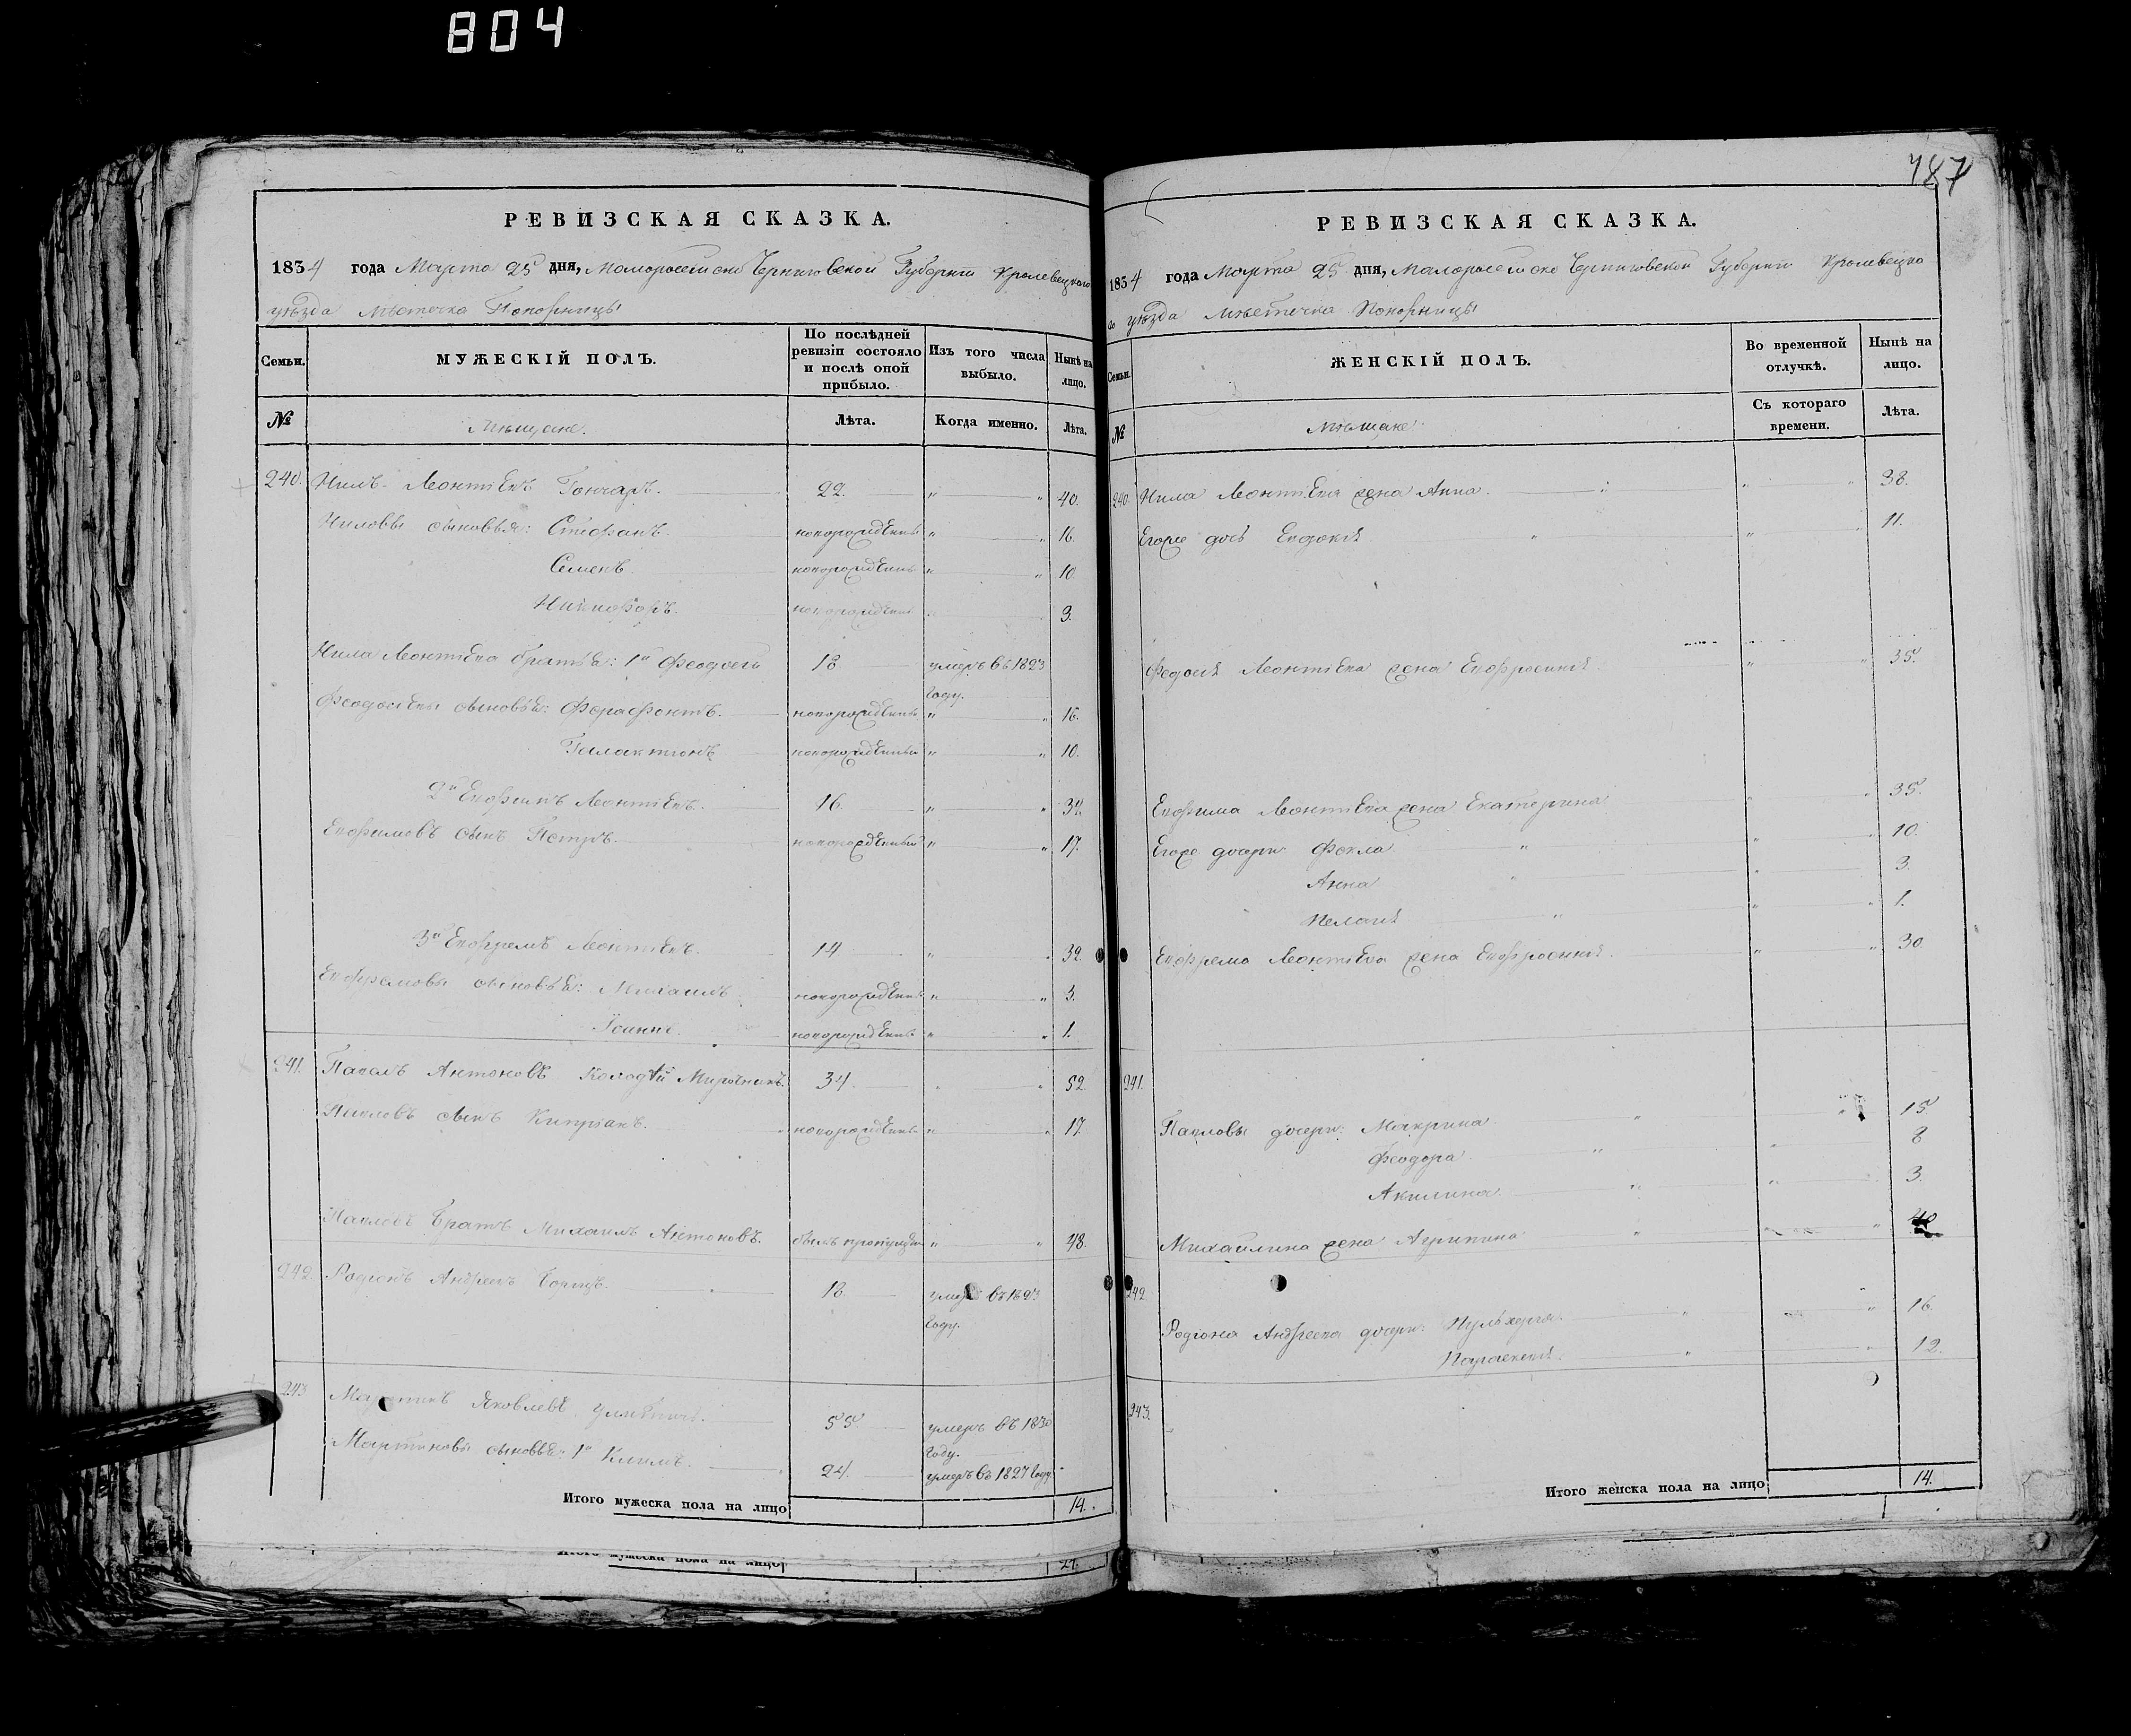 804
РЕВИЗСКАЯ СКАЗКА.
1834 года Марта 25 дня, Малороссийской Черниговской Губернии Кролевецкого
уѣзда Мѣстечка Понорницы
Семьи. МУЖЕСКІЙ ПОЛЪ. По послѣдней ревизіи состояло и послѣ оной прибыло. Изъ того числа выбыло. Нынѣ на лицо.
№ Мѣщане. Лѣта. Когда именно. Лѣта.
240. Нилъ Леонтіевъ Гончаръ. 22. " " 40.
Ниловы сыновья: Стефанъ. новорожденный " " 16.
Семенъ. новорожденный " " 10.
Никифоръ. новорожденный " 3.
Нила Леонтіева братья: 1й Феодосій 18 умеръ въ 1823
году.
Феодосіевы сыновья: Ферафонтъ. новорожденный " " 16.
Галактіонъ новорожденный " " 10.
2й Евфимъ Леонтіевъ. 16. " "
Евфимовъ сынъ Петръ. новорожденный " " 17.
3й Евфремъ Леонтіевъ. 14 " " 32.
Евфремовы сыновья: Михаилъ новорожденный " " 3.
Іоаннъ. новорожденный " " 1.
241. Павелъ Антоновъ 34 " " 52.
Павловъ сынъ Кипріанъ. новорожденный " " 17.
Павловъ братъ Михаилъ Антоновъ. былъ пропущенъ " " 48.
242. Родіонъ Андреевъ 18. умеръ въ 1823
году.
243 Мартинъ Яковлевъ 55 умеръ въ 1830
году.
Мартиновы сыновья: 1й Климъ. 24. умеръ въ 1827 году.
Итого мужеска пола на лицо 14.
Итого мужеска пола на лицо 21.
787
РЕВИЗСКАЯ СКАЗКА.
1834 года Марта 25 дня, Малороссийской Черниговской Губернии Кролевецко
го уѣзда Мѣстечка Понорницы
Семьи. ЖЕНСКІЙ ПОЛЪ. Во временной отлучкѣ. Нынѣ на лицо.
№ Мѣщане. Съ котораго времени. Лѣта.
240. Нила Леонтіева жена Анна. " " 38.
Егоже дочь Евдокія " " " 11.
Федосія Леонтіева жена Евфросинія " " 35.
Евфима Леонтіева жена Екатерина " " 35.
Егоже дочери Фекла " " " 10.
Анна " " 3.
Пелагія " " " 1.
Евфрема Леонтіева жена Евфросинія. " " 30.
241.
Павловы дочери: Макрина " " 15
Феодора " " 8
Акилина. " " 3.
Михайлина жена Агрипина " " "
242
Родіона Андреева дочери: Пульхерія. " " 16.
Параскевія. " " 12.
243.
Итого женска пола на лицо 14.